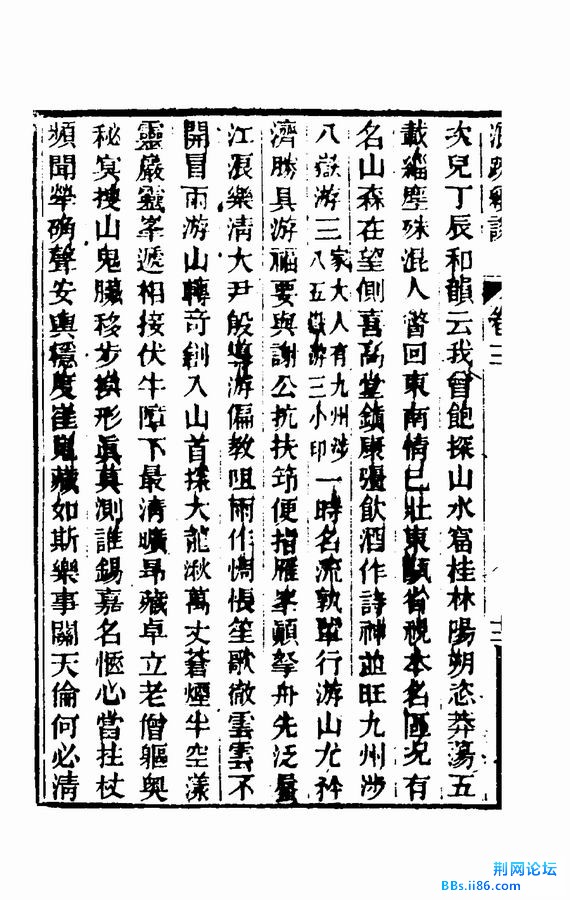 浪跡續談 卷三
次兒丁辰和韻云我曾飽探山水窟桂林陽朔恣莽蕩五
載緇塵殊混人瞥回東南情已壯東甌省視本名區況有
名山森在望側喜高堂鎮康彊飲酒作詩神並旺九州涉
八嶽游三家大人有九州涉八五嶽游三小印一時名流孰輩行游山尤矜
濟勝具游福要與謝公抗扶筇便指雁峯巔拏舟先泛蜃
江漲樂清大尹殷導游偏教阻雨作惆悵笙歌徹雲雲不
開冒雨游山轉奇創入山首探大龍湫萬丈蒼煙半空漾
靈巖靈峯遞相接伏牛障下最清曠昂藏卓立老僧軀奧
秘冥搜山鬼臟移步換形眞莫測誰錫嘉名愜心當拄杖
頻聞犖确聲安輿穩度崖嵬藏如斯樂事關天倫何必清
荆网论坛
BBs.ii86.com